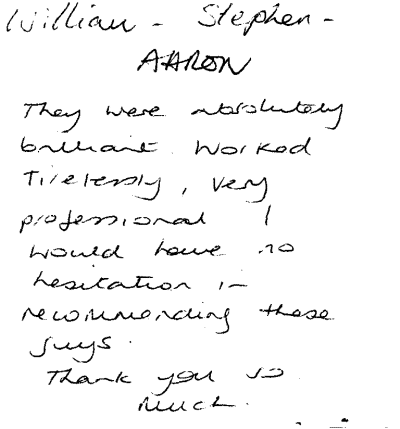 William - Stephen -
AARON
They were absolutely
brilliant. Worked
Tirelessly, very
professional I
would have no
hesitation in
recommending these
guys.
Thank you so
much.